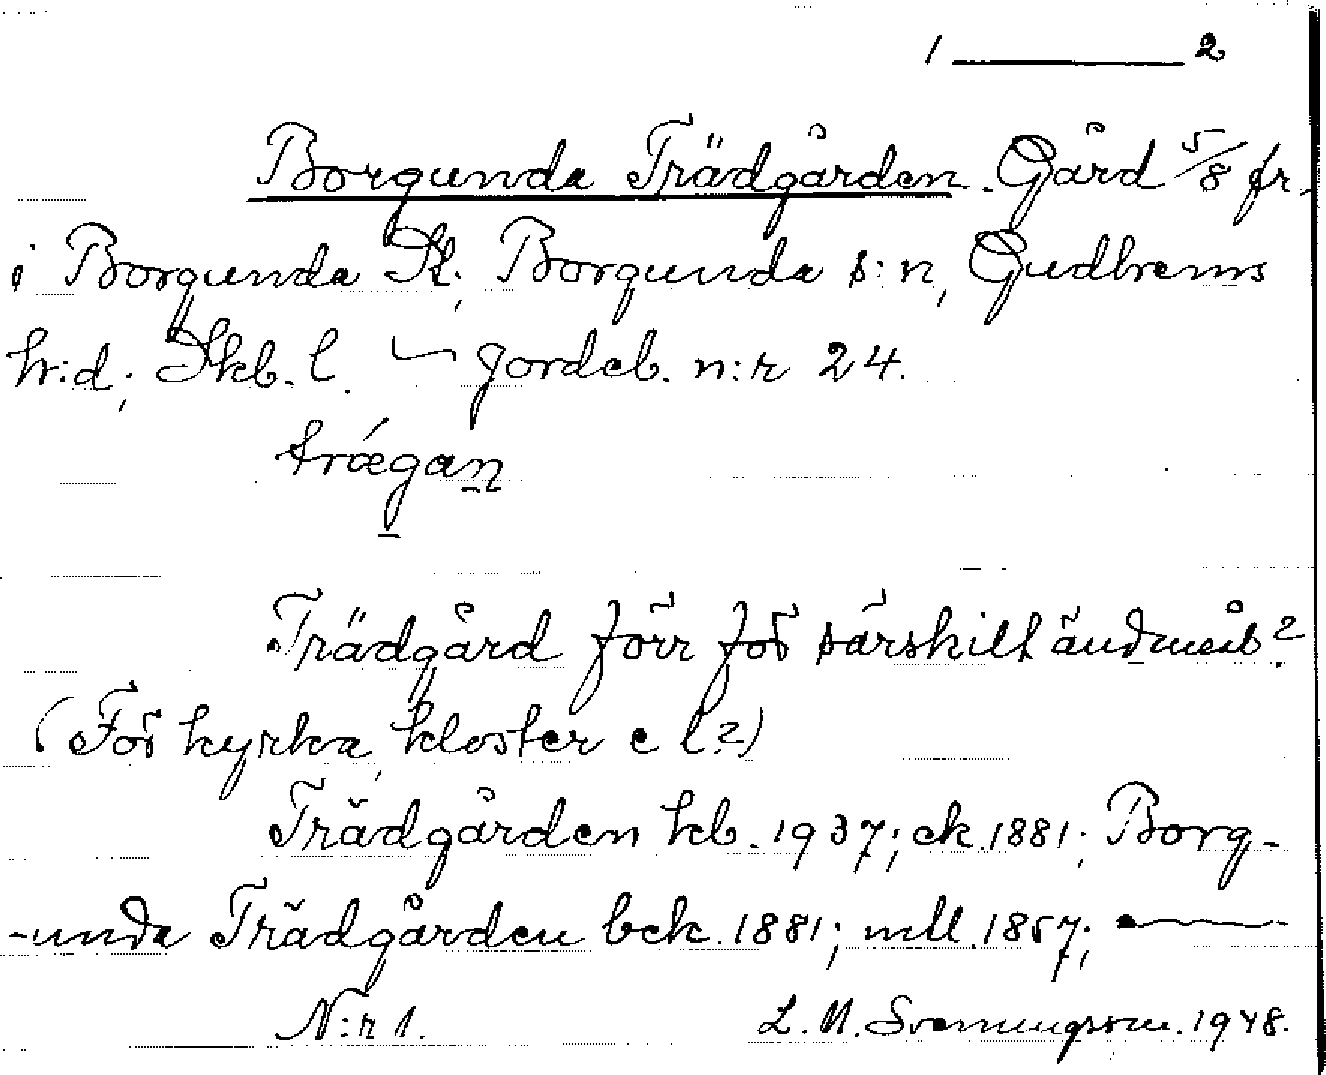 1 — 2
Borgunda Trädgården. Gård 5/8 fr.
i Borgunda K; Borgunda s:n, Gudhems
h:d; Skb. l. — Jordeb. n:r 24.
trǽgan
Trädgård förr för särskilt ändmål?
(För kyrka, kloster e l?)
Trädgården kb. 1937; ek. 1881; Borg-
-unda Trädgården bek. 1881; mll. 1857; —
N:r 1. L. M. Svenungsson. 1948.